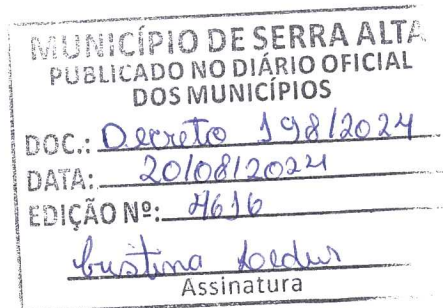 MUNICÍPIO DE SERRA ALTA
PUBLICADO NO DIÁRIO OFICIAL
DOS MUNICÍPIOS
DOC.: Decreto 198/2024
DATA: 20/08/2024
EDIÇÃO Nº: 4616
Assinatura